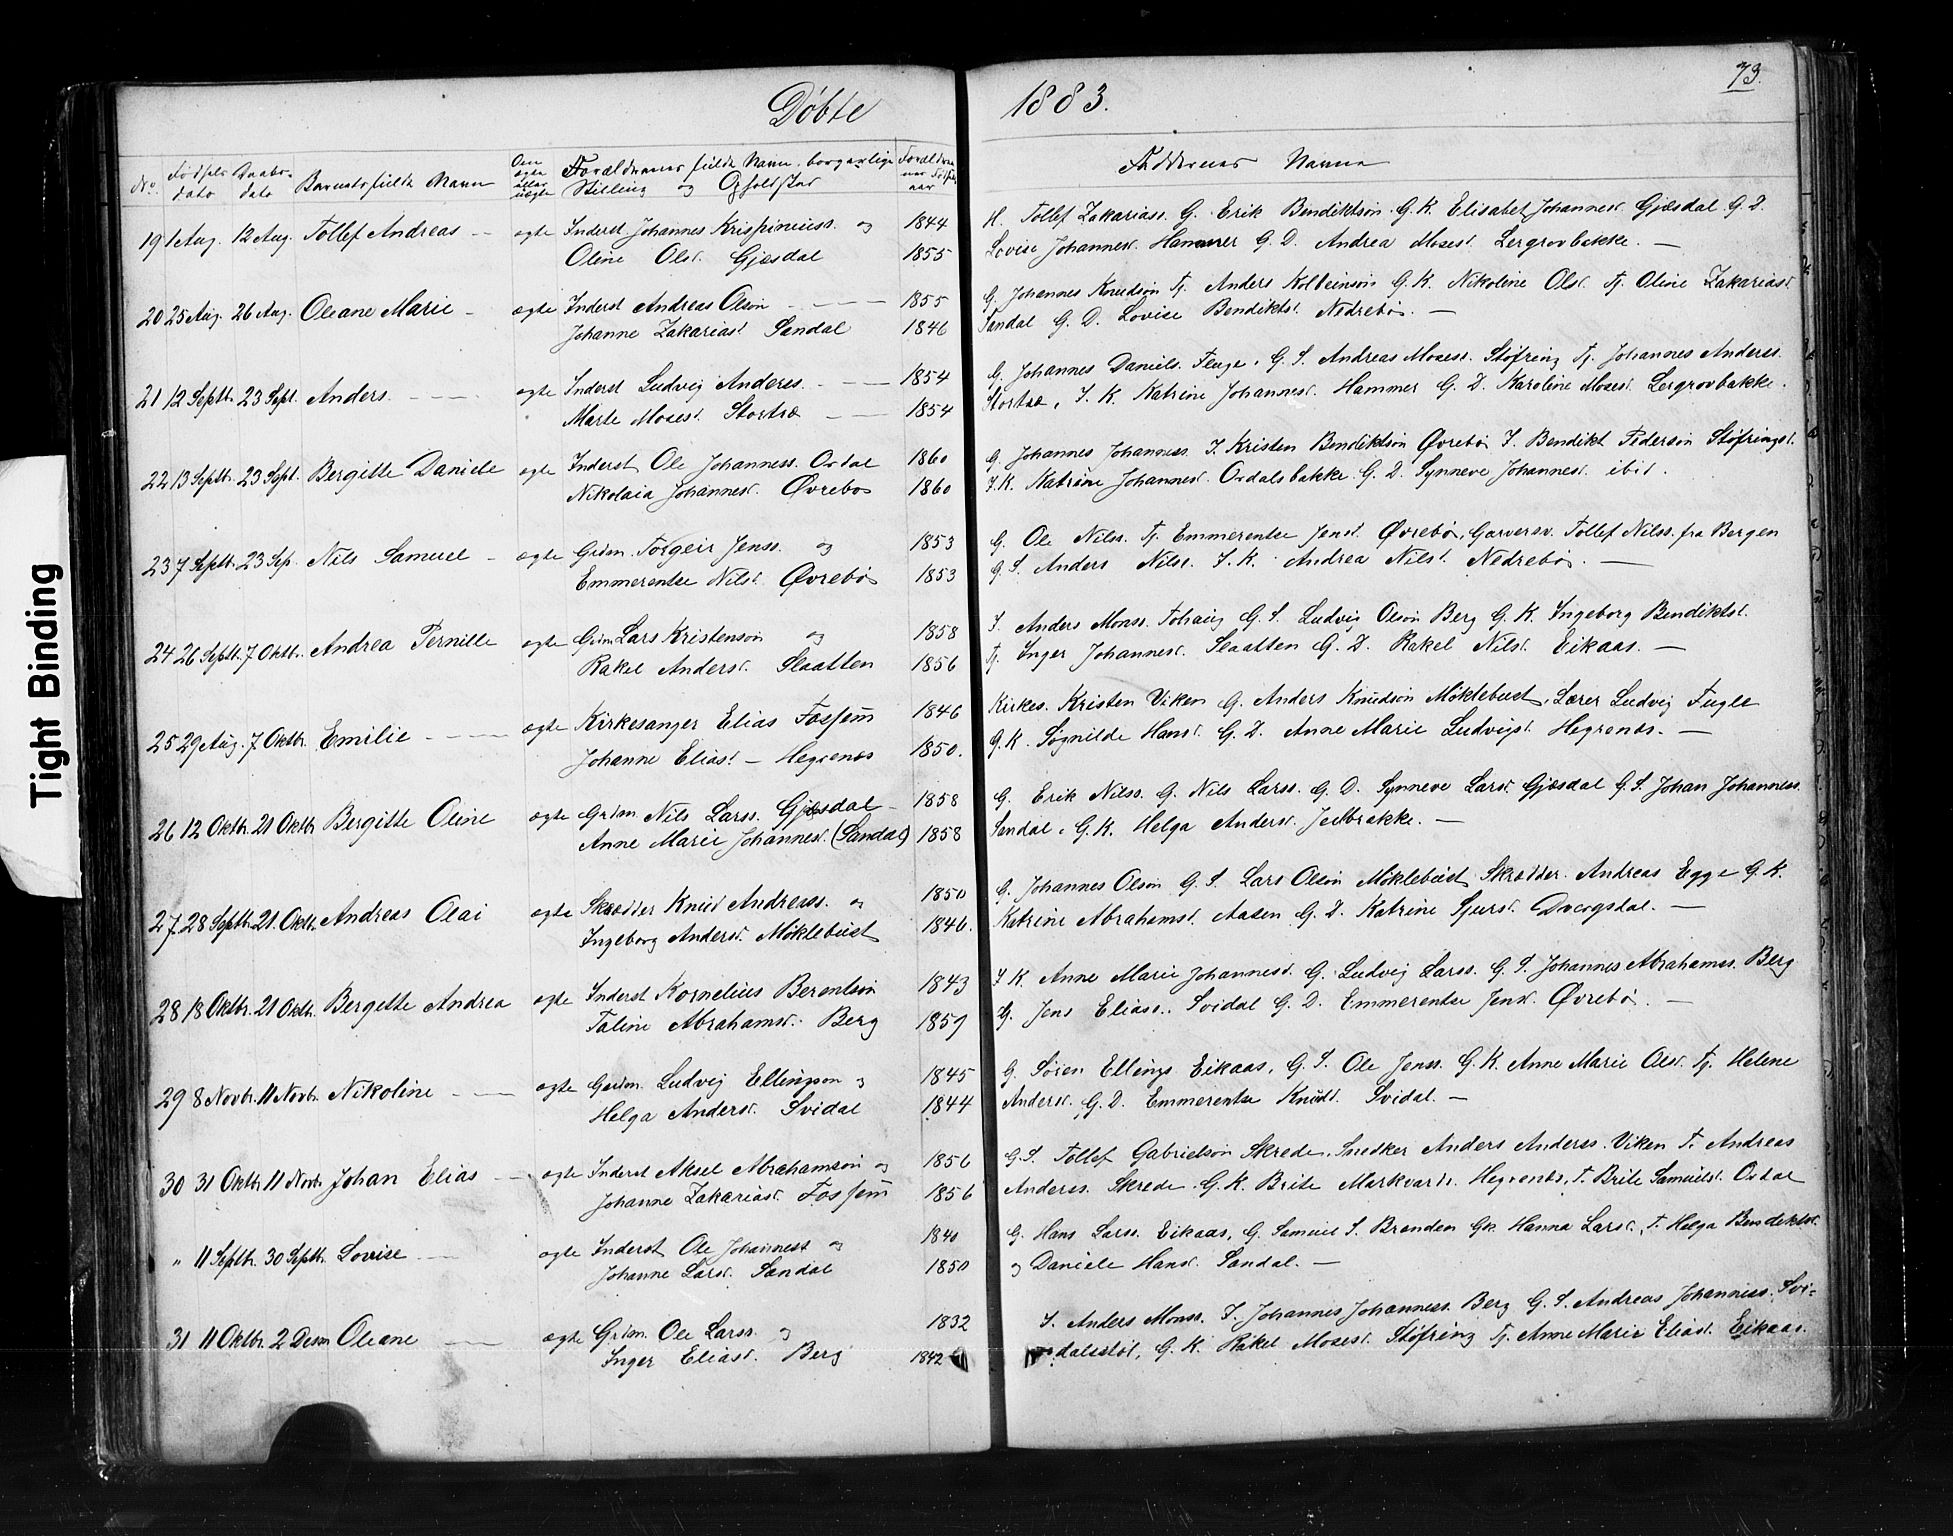 73.
Døbte 1883.
No. Fødsels dato Daabs dato Barnets fulde Navn Om ægte eller uægte Forældrenes fulde Navn, borgerlige Stilling og Opholdsted Forældrenes Fødselsaar Faddernes Navne
19 1 Aug. 12 Aug. Tollef Andreas — ægte Inderst Johannes Krispinuss. og 1844 H. Tollef Zakariass. G. Erik Bendiktson G. K. Elisabet Johannesd. Gjesdal G. D.
Oline Olsd. Gjesdal 1855 Lovise Johannesd. Hammer G. D. Andrea Mosesd. Lergrovbakke. —
20 25 Aug. 26 Aug. Oleane Marie — ægte Inderst Andreas Olson — — — 1855 G. Johannes Knudson Tj. Anders Kolbeinson G. K. Nikoline Olsd. Tj. Oline Zakariasd.
Johanne Zakariasd. Sandal 1846 Sandal G. D. Lovise Bendiktsd. Nedrebø. —
21 12 Septb. 23 Sept. Anders. — — — ægte Inderst Ludvig Anderss. — — — 1854 G. Johannes Daniels. Fluge, G. S. Andreas Mosess. Støfring Tj. Johannes Anderss.
Marte Mosesd. Stortræ — — 1854 Stortræ, I. K. Katrine Johannesd. Hammer G. D. Karoline Mosesd. Lergrovbakke.
22 13 Septb. 23 Sept. Bergitte Daniele ægte Inderst Ole Johanness. Ordal 1860 G. Johannes Johanness. I. Kristen Bendiktson Øvrebø I. Bendikt Pederson Støfringsl.
Nikolaia Johannesd. Øvrebø 1860 I. K. Katrine Johannesd. Ordalsbakke G. D. Synneve Johannesd. ibid.
23 7 Septb. 23 Sep. Nils Samuel — ægte Grdm. Torgeir Jenss. og 1853 G. Ole Nilss. Tj. Emmerentse Jensd. Øvrebø, Garversv. Tollef Nilss. fra Bergen
Emmerentse Nilsd. Øvrebø 1853 G. S. Anders Nilss. I. K. Andrea Nilsd. Nedrebø. —
24 26 Septb. 7 Oktb. Andrea Pernille ægte Grdm. Lars Kristenson og 1858 I. Anders Monss. G. S. Ludvig Olson Berg G. K. Ingeborg Bendiktsd.
Rakel Andersd. Slaatten 1856 Tj. Inger Johannesd. Slaatten G. D. Rakel Nilsd. Eikaas. —
25 29 Aug. 7 Oktbr. Emilie — — — ægte Kirkesanger Elias Fossem 1846 Kirkes. Kristen Viken G. Anders Knudson Møklebust, Lærer Ludvig Fugle
Johanne Eliasd. — Hegrenæs 1850. G. K. Søgnilde Hansd. G. D. Anne Marie Ludvigsd. Hegrenæs. —
26 12 Oktbr. 21 Oktbr Bergitte Oline ægte Grdm Nils Larss. Gjesdal — 1858 G. Erik Nilss. G. Nils Larss. G. D. Synneve Larsd. Gjesdal G. S. Johan Johanness.
Anne Marie Johannesd. (Sandal) 1858 Sandal, G. K. Helga Andersd. —
27 28 Septb. 21. Oktbr. Andreas Olai ægte Skrædder Knud Andreass. og 1850 G. Johannes Olson G. S. Lars Olson Møklebust Skrædder Andreas Egge G. K.
Ingeborg Andersd. Møklebust 1846. Katrine Abrahamsd. Aasen G. D. Katrine Sjursd. Dvergsdal. —
28 18 Oktbr. 21 Oktbr. Bergitte Andrea ægte Inderst Kornelius Berentson 1843 I. K. Anne Marie Johannesd. G. Ludvig Larss. G. S. Johannes Abrahamss. Berg
Taline Abrahamsd. Berg 1859 G. Jens Eliass. Svidal G. D. Emmerentse Jensd. Øvrebø. —
29 8 Novbr. 11 Novbr. Nikoline — — ægte Gardm. Ludvig Ellingson og 1845 G. Søren Ellings. Eikaas, G. S. Ole Jenss. G. K. Anne Marie Olsd. Tj. Helene
Helga Andersd. Svidal 1844 Andersd. G. D. Emmerentse Knudsd. Svidal. —
30 31 Oktbr. 11 Novbr. Johan Elias — ægte Inderst Aksel Abrahamson og 1856 G. S. Tollef Gabrielson Skrede, Snedker Anders Anderss. Viken T. Andreas
Johanne Zakariasd. Fossem 1856 Anderss. Skrede. G. K. Brite Markvardsd. Hegrenæs, T. Brite Samuelsd. Ordal
" 11 Septbr. 30 Septbr. Lovise — — ægte Inderst Ole Johanness og 1840 G. Hans Larss. Eikaas, G. Samuel S. Brenden GK Hanna Larsd., T. Helga Bendiktsd.
Johanne Larsd. Sandal 1850 og Daniele Hansd. Sandal. —
31 11 Oktbr. 2 Desm Oleane — — ægte Grdm. Ole Larss. og 1832 I. Anders Monss. I. Johannes Johanness. Berg G. S. Andreas Johanness. Svi-
Inger Eliasd. Berg 1842 dalsstøl, G. K. Rakel Mosesd. Støfring Tj. Anne Marie Eliasd. Eikaas.
Tight Binding